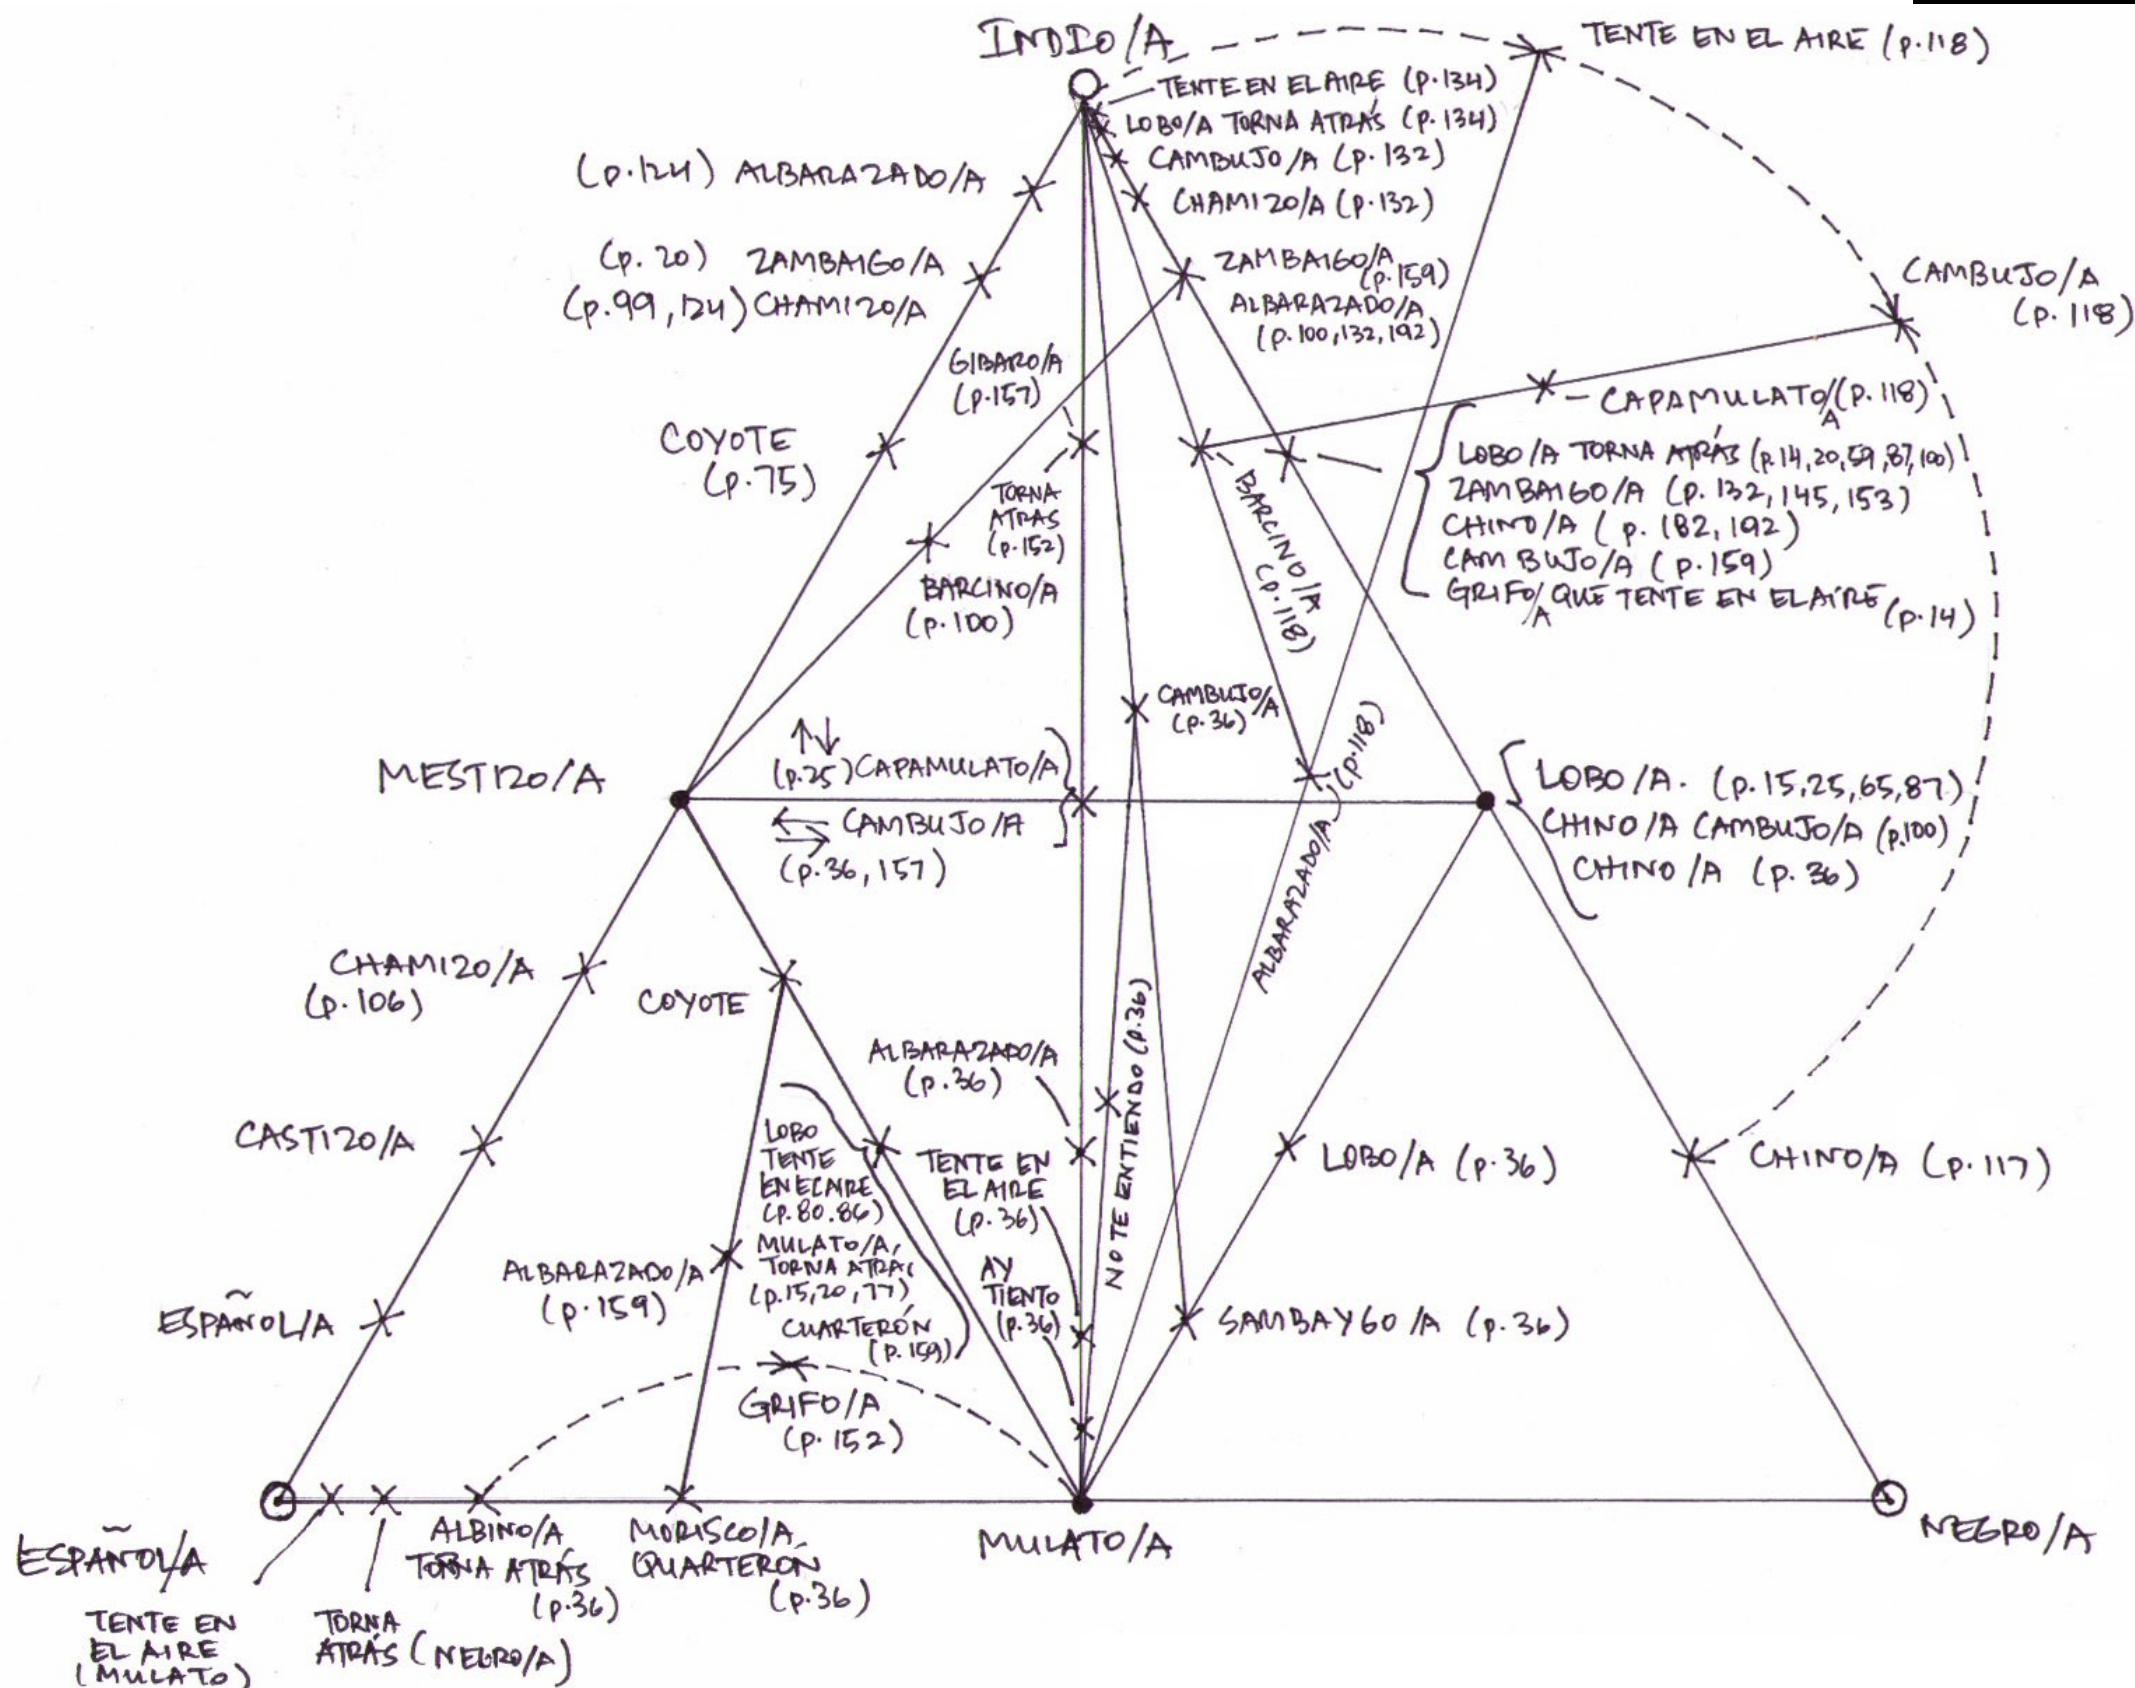 INDIO/A
TENTE EN EL AIRE (p.118)
TENTE EN EL AIRE (p.134)
LOBO/A TORNA ATRÁS (p.134)
CAMBUJO/A (p.132)
CHAMIZO/A (p.132)
(p.124) ALBARAZADO/A
(p. 20) ZAMBAIGO/A
(p.99, 124) CHAMIZO/A
ZAMBAIGO/A
(p.159)
ALBARAZADO/A
(p.100,132,192)
CAMBUJO/A
(p.118)
GIBARO/A
(p.157)
CAPAMULATO/A (p.118)
COYOTE
(p.75)
LOBO/A TORNA ATRÁS (p.14,20,59,87,100)
ZAMBAIGO/A (p. 132, 145, 153)
CHINO/A (p. 182, 192)
CAMBUJO/A (p.159)
GRIFO/A QUE TENTE EN EL AIRE (p.14)
TORNA
ATRAS
(p.152)
BARCINO/A
(p.118)
BARCINO/A
(p.100)
CAMBUJO/A
(p.36)
MESTIZO/A
(p.25) CAPAMULATO/A
CAMBUJO/A
(p.36, 157)
LOBO/A. (p.15,25,65,87)
CHINO/A CAMBUJO/A (p.100)
CHINO/A (p. 36)
ALBARAZADO/A (p.118)
CHAMIZO/A
(p.106)
COYOTE
NO TE ENTIENDO (p.36)
ALBARAZADO/A
(p.36)
CASTIZO/A
LOBO
TENTE
EN EL AIRE
(p.80.86)
MULATO/A,
TORNA ATRAS
(p.15,20,77)
CUARTERÓN
(p.159)
TENTE EN
EL AIRE
(p.36)
LOBO/A (p.36)
CHINO/A (p.117)
ALBARAZADO/A
(p.159)
AY
TIENTO
(p.36)
ESPAÑOL/A
SAMBAYGO/A (p.36)
GRIFO/A
(p.152)
ESPAÑOL/A
ALBINO/A
TORNA ATRÁS
(p.36)
MORISCO/A
QUARTERÓN
(p.36)
MULATO/A
NEGRO/A
TENTE EN
EL AIRE
(MULATO)
TORNA
ATRÁS (NEGRO/A)